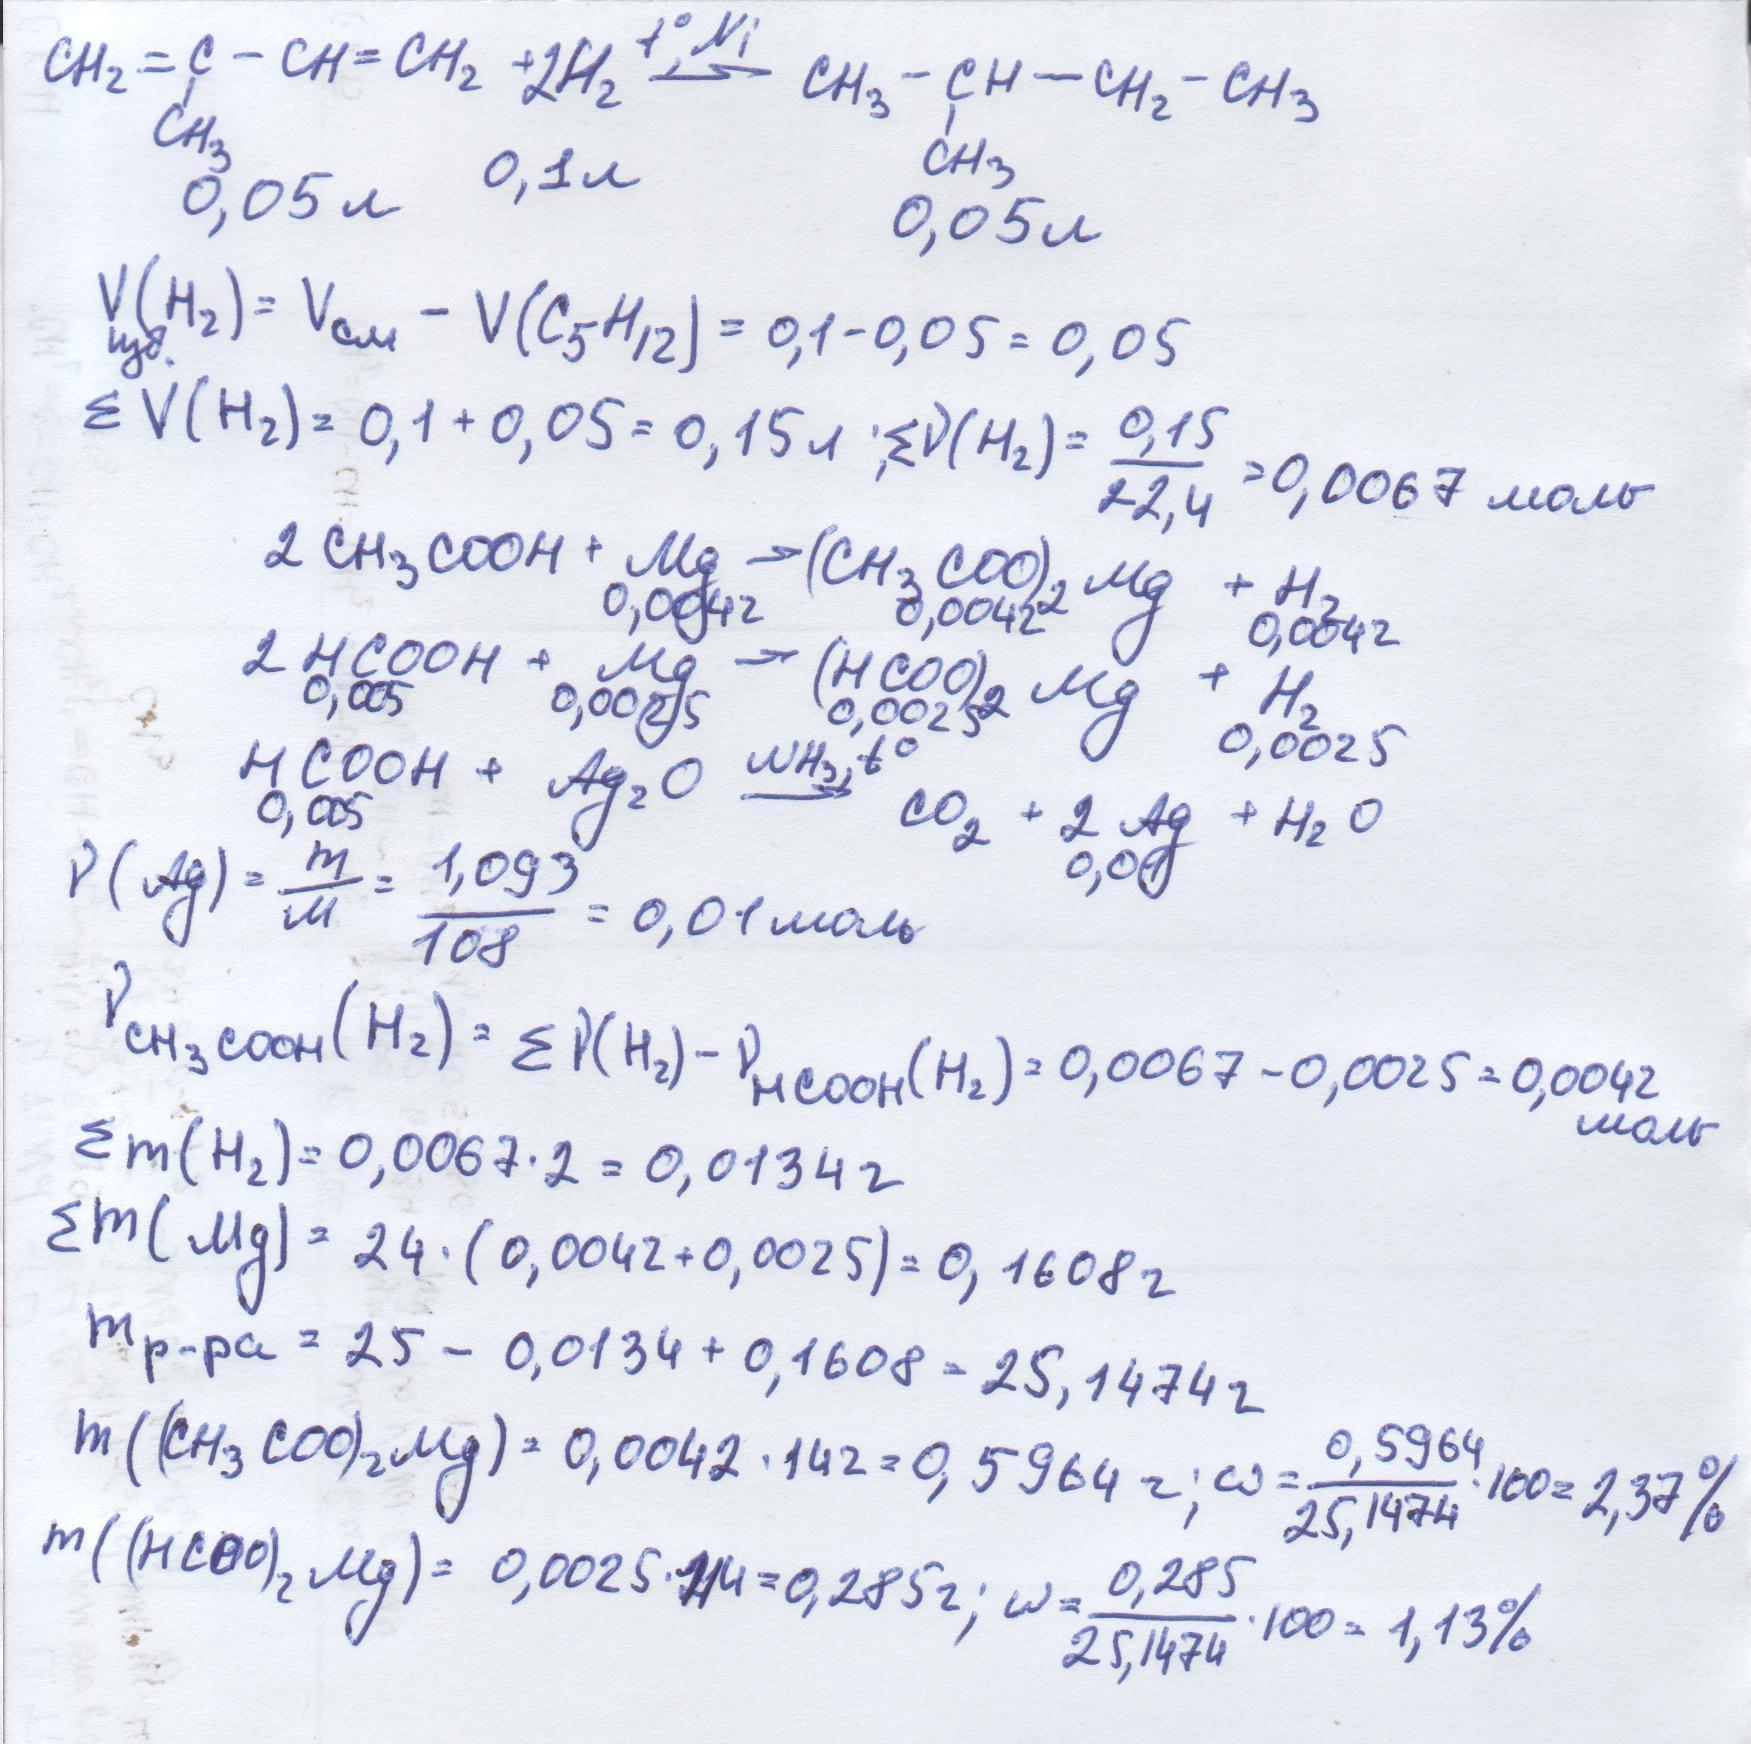 CH₂ = C - CH = CH₂ + 2H₂ t°, Ni → CH₃ - CH - CH₂ - CH₃
CH₃ CH₃
0,05 л 0,1 л 0,05 л
V(H₂) изб. = Vсм - V(C₅H₁₂) = 0,1 - 0,05 = 0,05
Σ V(H₂) = 0,1 + 0,05 = 0,15 л; Σν(H₂) = 0,15/22,4 = 0,0067 моль
2 CH₃COOH + Mg → (CH₃COO)₂Mg + H₂
0,0042 0,0042 0,0042
2 HCOOH + Mg → (HCOO)₂Mg + H₂
0,005 0,0025 0,0025 0,0025
HCOOH + Ag₂O NH₃, t° → CO₂ + 2 Ag + H₂O
0,005 0,01
ν(Ag) = m/M = 1,093/108 = 0,01 моль
ν CH₃COOH (H₂) = Σν(H₂) - ν HCOOH (H₂) = 0,0067 - 0,0025 = 0,0042 моль
Σm(H₂) = 0,0067·2 = 0,0134 г
Σm(Mg) = 24·(0,0042+0,0025) = 0,1608 г
m р-ра = 25 - 0,0134 + 0,1608 = 25,1474 г
m((CH₃COO)₂Mg) = 0,0042·142 = 0,5964 г; ω = 0,5964/25,1474·100 = 2,37%
m((HCOO)₂Mg) = 0,0025·114 = 0,285 г; ω = 0,285/25,1474·100 = 1,13%